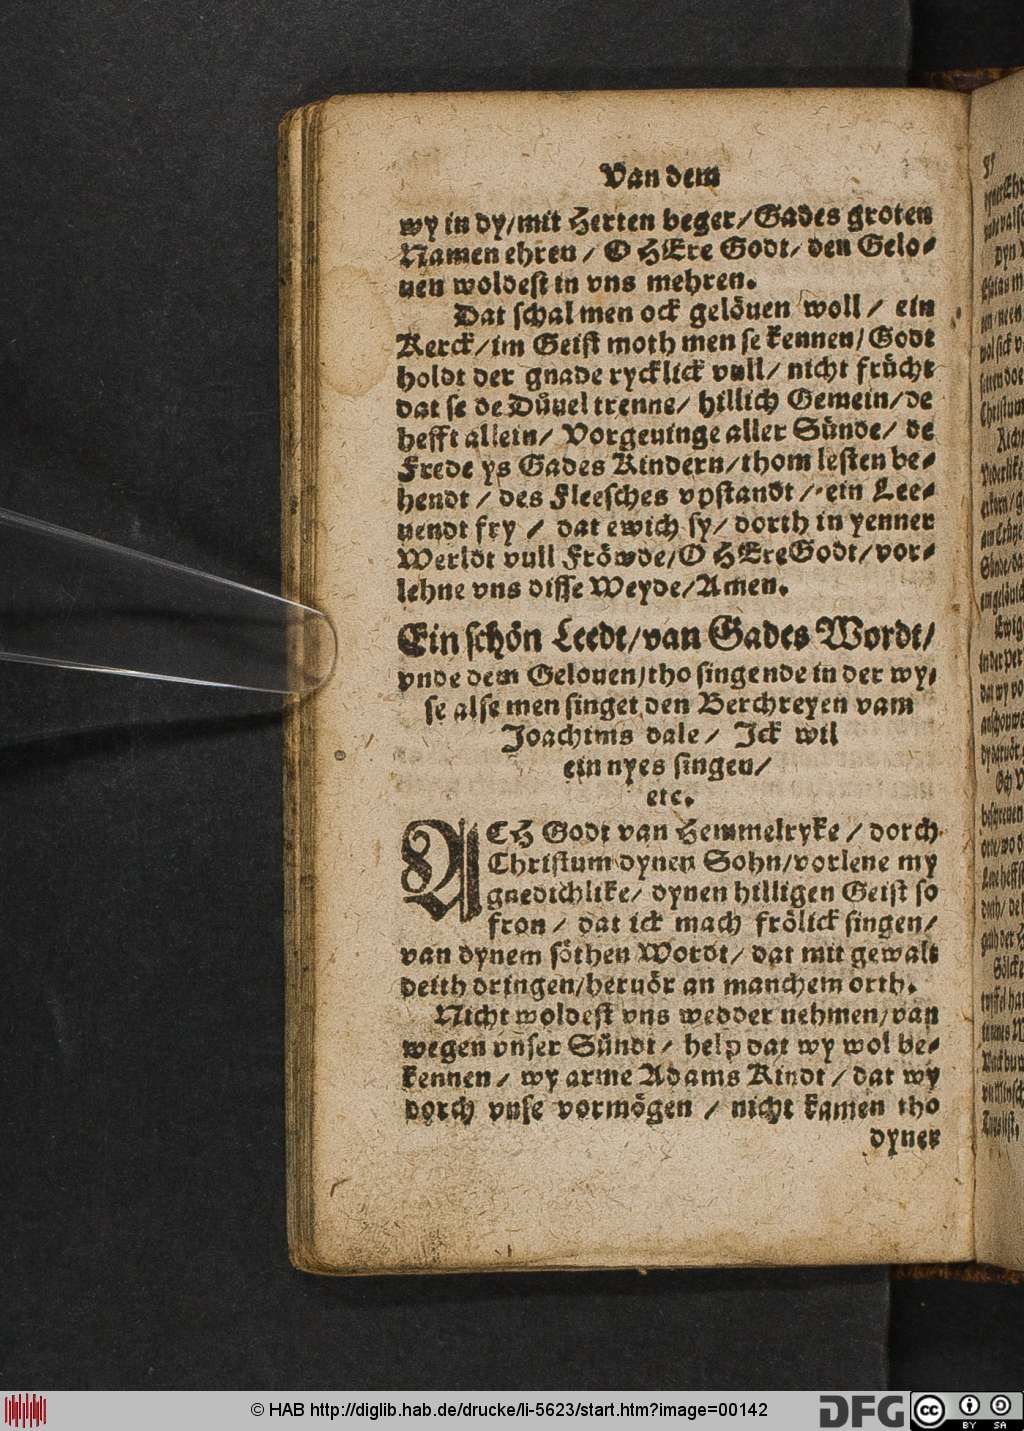 Van dem
wy in dy/mit Herten beger/Gades groten
Namen ehren / O HEre Godt/ den Gelo⸗
uen woldest in vns mehren.
Dat schal men ock gelöuen woll / ein
Kerck/im Geist moth men se kennen/Godt
holdt der gnade rycklick vull/ nicht frücht
dat se de Düuel trenne/ hillich Gemein/de
hefft allein/ Vorgeuinge aller Sünde/ de
Frede ys Gades Kindern/thom lesten be⸗
hendt / des Fleesches vpstandt / ein Lee⸗
uendt fry / dat ewich sy/ dorth in yenner
Werldt vull Fröwde/O HEre Godt/vor⸗
lehne vns disse Weyde/Amen.
Ein schön Leedt/van Gades Wordt/
vnde dem Gelouen/tho singende in der wy⸗
se alse men singet den Berchreyen vam
Joachims dale/ Jck wil
ein nyes singen/
etc.
ACH Godt van Hemmelryke / dorch
Christum dynen Sohn/vorlene my
gnedichlike/ dynen hilligen Geist so
fron / dat ick mach frölick singen/
van dynem söthen Wordt/ dat mit gewalt
deith dringen/heruör an manchem orth.
Nicht woldest vns wedder nehmen/van
wegen vnser Sündt/ help dat wy wol be⸗
kennen / wy arme Adams Kindt / dat wy
dorch vnse vormögen / nicht kamen tho
dyner
© HAB http://diglib.hab.de/drucke/li-5623/start.htm?image=00142
DFG
cc
BY SA